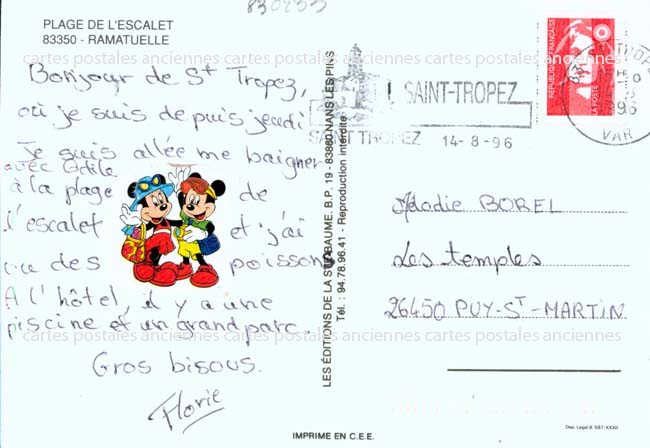 830233
PLAGE DE L'ESCALET
83350 - RAMATUELLE
cartes postales anciennes cartes postales anciennes cartes postales anciennes
Bonjour de St Tropez,
où je suis depuis jeudi
Je suis allée me baigner
avec Odile
à la plage de
l'escalet et j'ai
vu des poissons
A l'hôtel, il y a une
piscine et un grand parc.
cartes postales anciennes cartes postales anciennes cartes postales anciennes
Gros bisous.
Florie
LES ÉDITIONS DE LA STE BAUME. B.P. 19 - 83860 NANS LES PINS
Tél. : 94.78.96.41 - Reproduction interdite
IMPRIME EN C.E.E.
SAINT-TROPEZ
SAINT TROPEZ 14-8-96
RÉPUBLIQUE FRANÇAISE
LA POSTE
VAR
Elodie BOREL
Les temples
26450 PUY-ST-MARTIN
Dep. Legal B. 587-XXXII